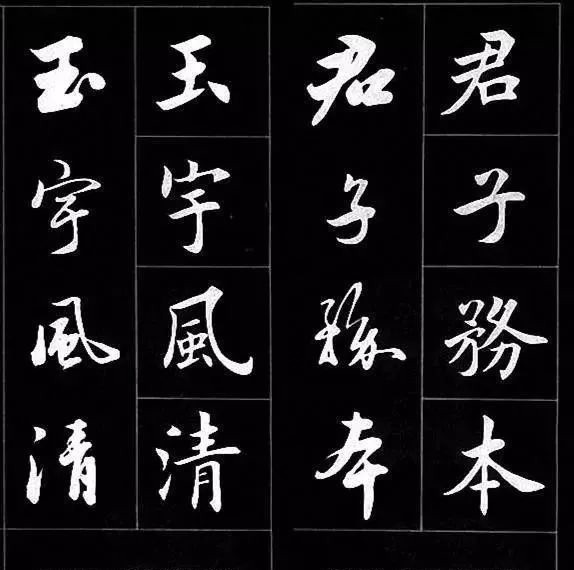 君子務本
君子務本
玉宇風清
玉宇風清